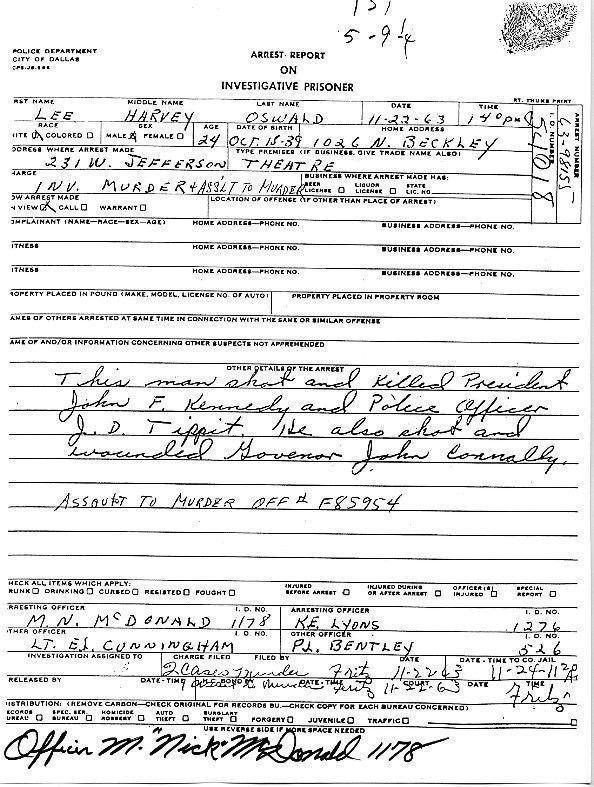 131
5-9 1/4
POLICE DEPARTMENT
CITY OF DALLAS
ARREST REPORT
ON
INVESTIGATIVE PRISONER
RST NAME MIDDLE NAME LAST NAME DATE TIME RT. THUMB PRINT
LEE HARVEY OSWALD 11-22-63 1 40 PM
RACE SEX AGE DATE OF BIRTH HOME ADDRESS
ITE COLORED MALE FEMALE 24 OCT 18-39 1026 N. BECKLEY
DDRESS WHERE ARREST MADE TYPE PREMISES (IF BUSINESS, GIVE TRADE NAME ALSO)
231 W. JEFFERSON THEATRE
I D NUMBER
54018
ARREST NUMBER
63-98155
HARGE BUSINESS WHERE ARREST MADE HAS:
INV. MURDER + ASSLT TO MURDER BEER LICENSE LIQUOR LICENSE STATE LIC. NO.
OW ARREST MADE LOCATION OF OFFENSE (IF OTHER THAN PLACE OF ARREST)
N VIEW CALL WARRANT
OMPLAINANT (NAME—RACE—SEX—AGE) HOME ADDRESS—PHONE NO. BUSINESS ADDRESS—PHONE NO.
ITNESS HOME ADDRESS—PHONE NO. BUSINESS ADDRESS—PHONE NO.
ITNESS HOME ADDRESS—PHONE NO. BUSINESS ADDRESS—PHONE NO.
ROPERTY PLACED IN POUND (MAKE, MODEL, LICENSE NO. OF AUTO) PROPERTY PLACED IN PROPERTY ROOM
AMES OF OTHERS ARRESTED AT SAME TIME IN CONNECTION WITH THE SAME OR SIMILAR OFFENSE
AME OF AND/OR INFORMATION CONCERNING OTHER SUSPECTS NOT APPREHENDED
OTHER DETAILS OF THE ARREST
This man shot and killed President
John F. Kennedy and Police Officer
J. D. Tippit. He also shot and
wounded Govenor John Connally.
ASSAULT TO MURDER OFF # F85954
HECK ALL ITEMS WHICH APPLY:
RUNK DRINKING CURSED RESISTED FOUGHT INJURED BEFORE ARREST INJURED DURING OR AFTER ARREST OFFICER(S) INJURED SPECIAL REPORT
RRESTING OFFICER I. D. NO. ARRESTING OFFICER I. D. NO.
M. N. McDONALD 1178 K.E. LYONS 1276
THER OFFICER I. D. NO. OTHER OFFICER I. D. NO.
LT. E.L. CUNNINGHAM P.L. BENTLEY 526
INVESTIGATION ASSIGNED TO CHARGE FILED FILED BY DATE DATE - TIME TO CO. JAIL
2 Cases Murder Fritz 11-22-63 11-24-1120
RELEASED BY DATE-TIME DATE-TIME COURT DATE TIME
Murder Fritz 11-22-63 Fritz
ISTRIBUTION: (REMOVE CARBON—CHECK ORIGINAL FOR RECORDS BU.—CHECK COPY FOR EACH BUREAU CONCERNED)
ECORDS UREAU SPEC. SER. BUREAU HOMICIDE ROBBERY AUTO THEFT BURGLARY THEFT FORGERY JUVENILE TRAFFIC
USE REVERSE SIDE IF MORE SPACE NEEDED
Officer M. "Nick" McDonald 1178